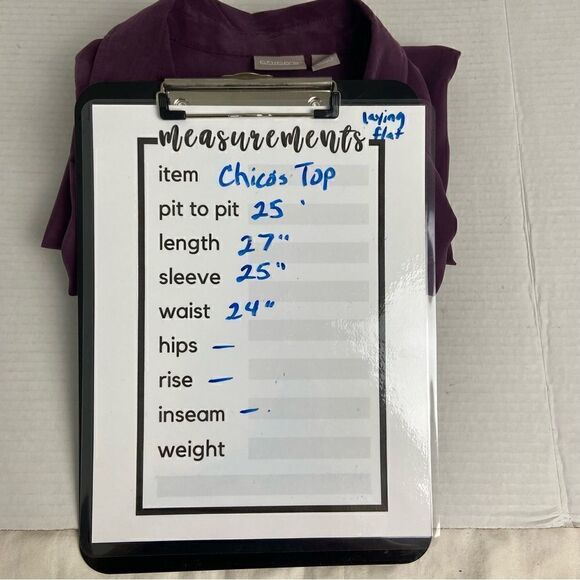 chico's
laying
flat
measurements
item Chicos Top
pit to pit 25 '
length 27"
sleeve 25"
waist 24"
hips —
rise —
inseam —
weight